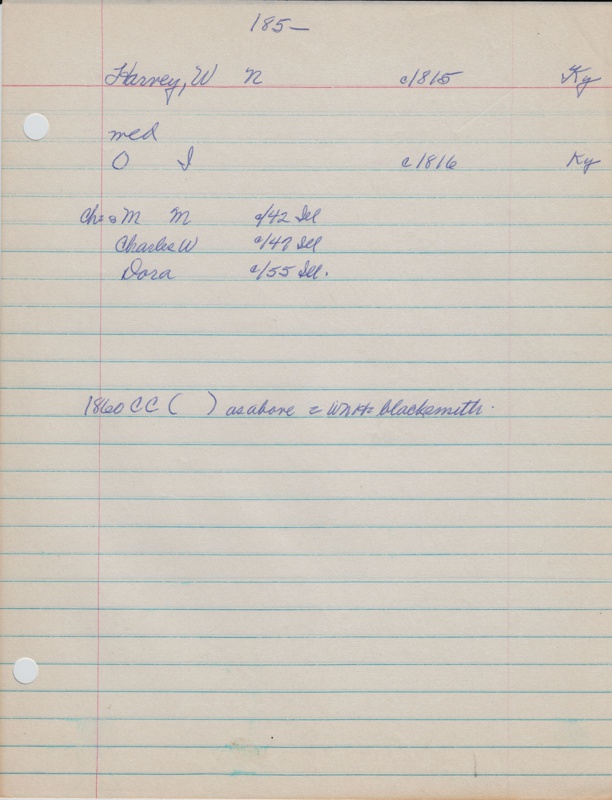 185—
Harvey, W N c1815 Ky
med
O I c1816 Ky
Ch: M M c/42 Ill
Charles W c/47 Ill
Dora c/55 Ill.
1860 CC ( ) as above = WNH = blacksmith.